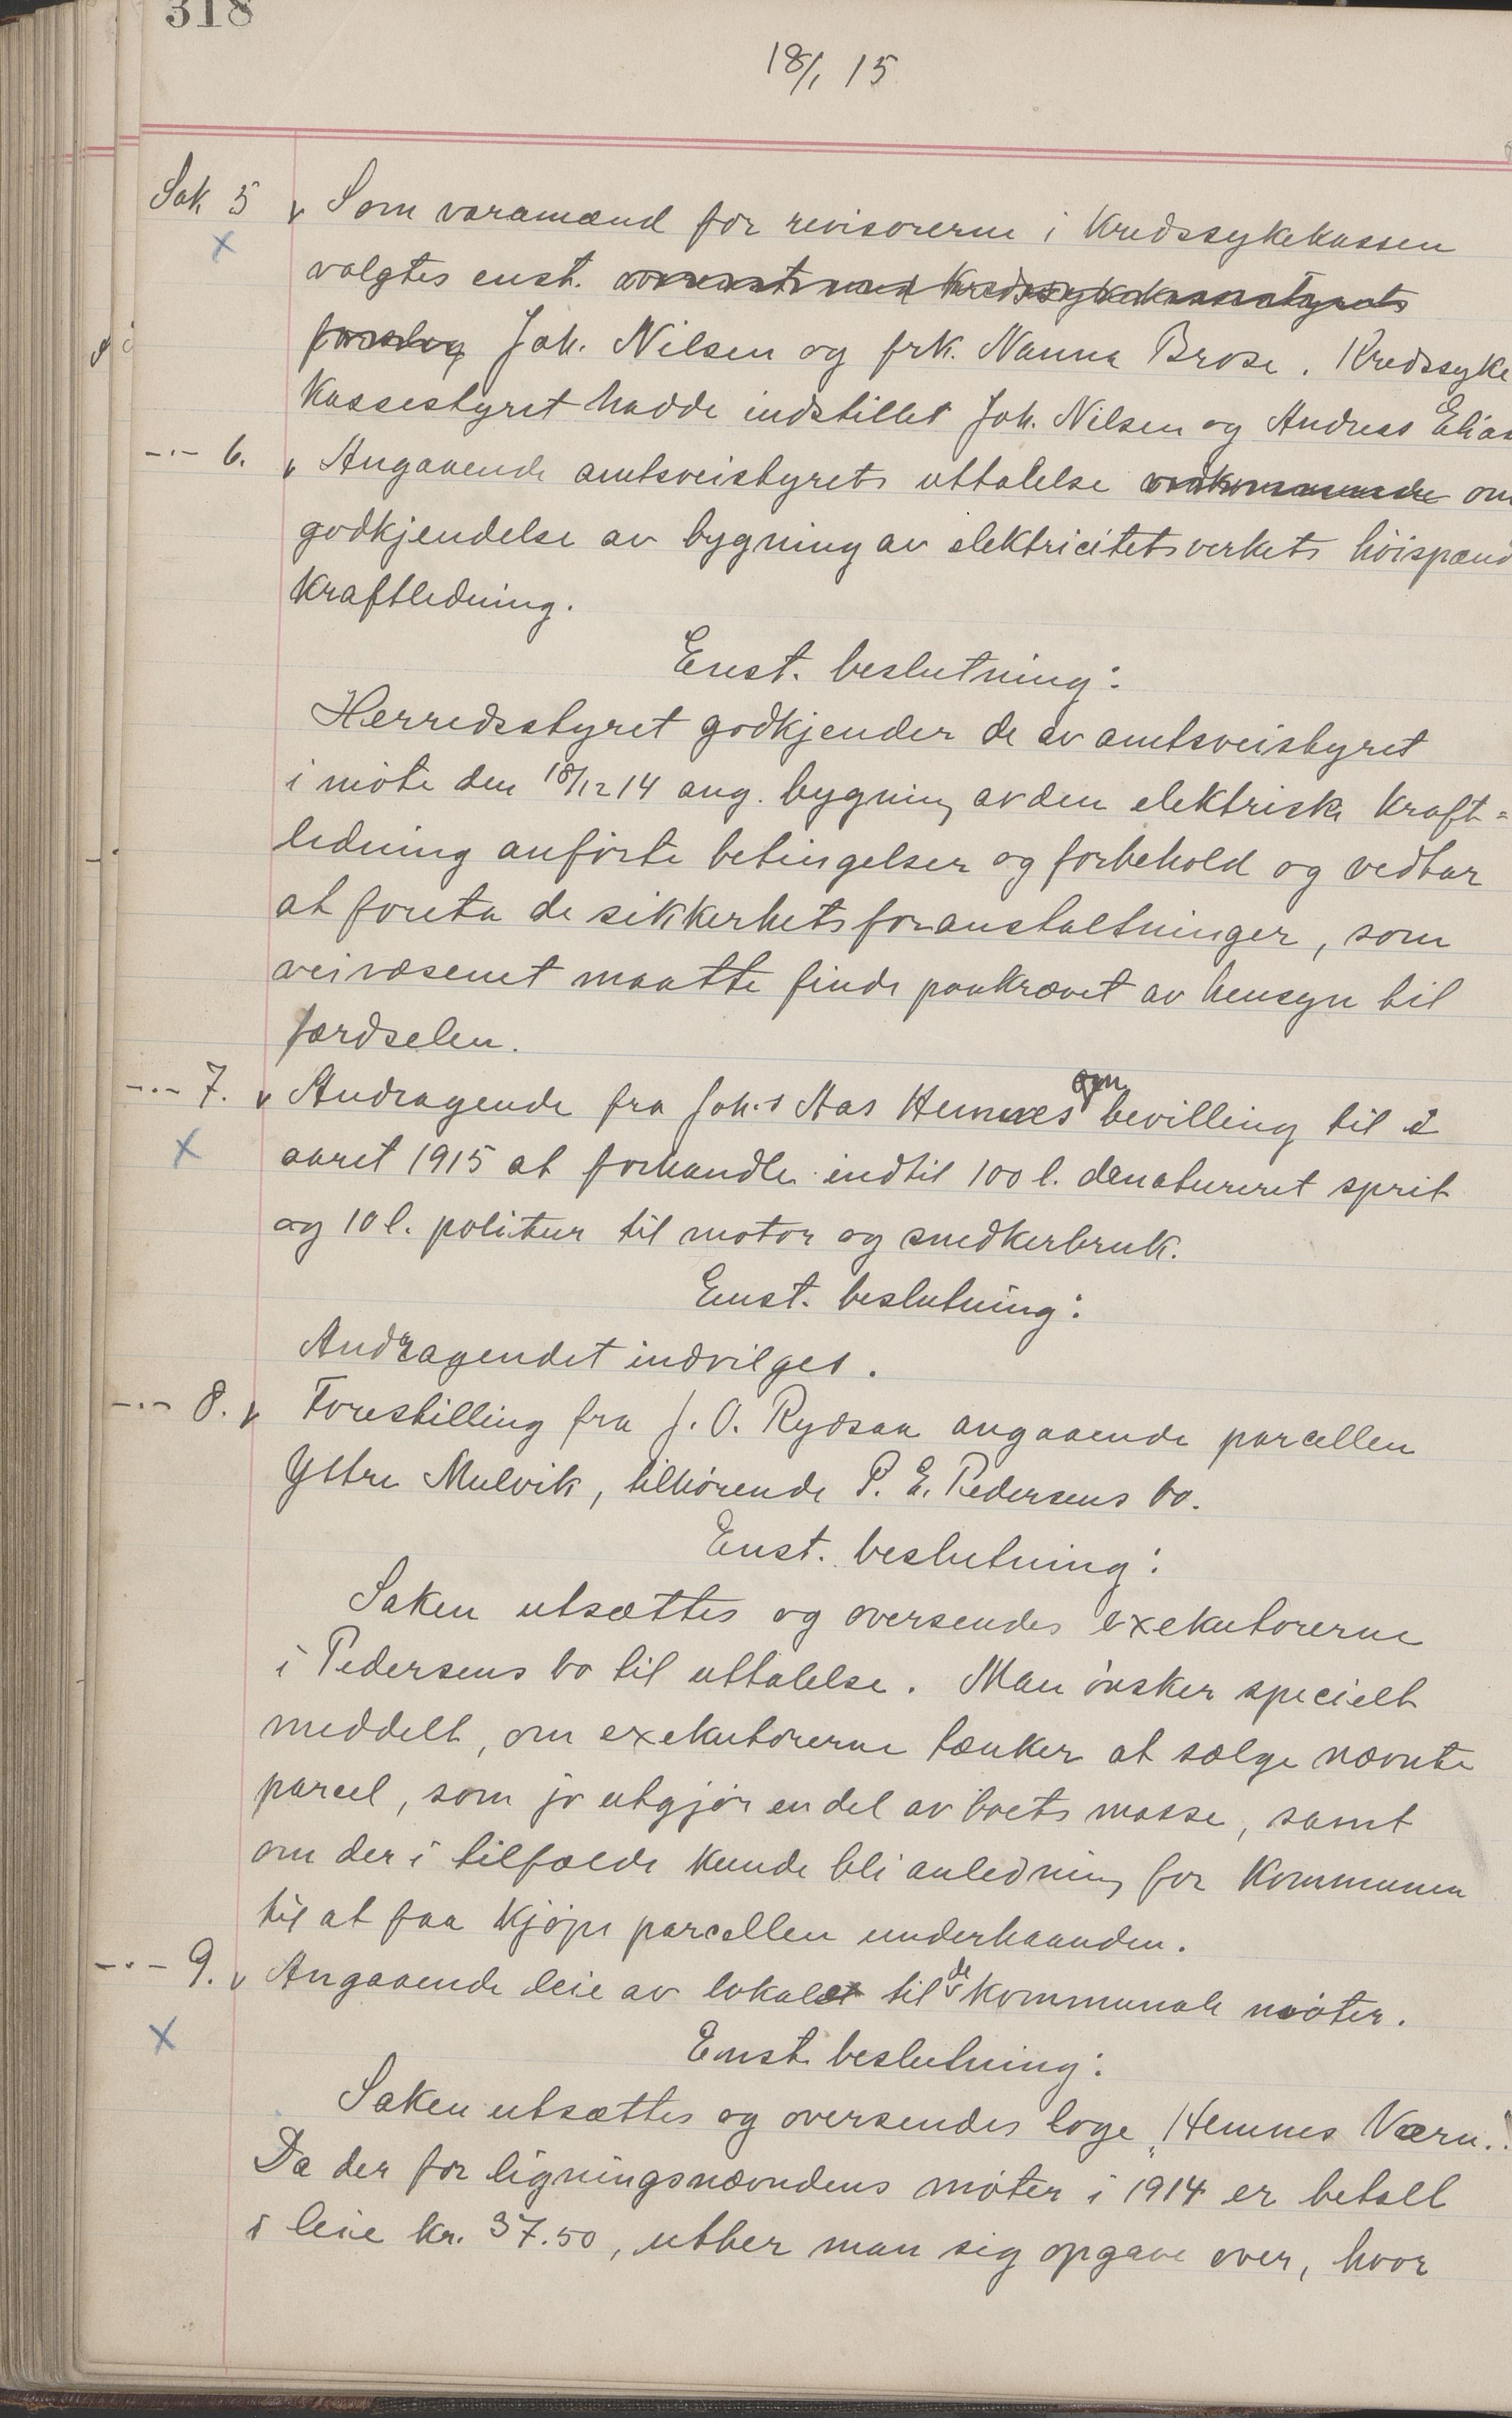 318
18/1 15
Sak 5 Som varamænd for revisorerne i Kredssykekassen
valgtes enst. overensst. med Kredssykekassestyrets
forslag Joh. Nilsen og frk. Nanna Brose. Kredssyke
kassestyret hadde indstillet Joh. Nilsen og Andreas Elias
-"- 6. Angaaende amtsveistyrets uttalelse vedkommende om
godkjendelse av bygning av elektricitetsverkets höispænd
kraftledning.
Enst. beslutning:
Herredsstyret godkjender de av amtsveistyret
i möte den 18/12 14 ang. bygning av den elektriske kraft=
ledning anförte betingelser og forbehold og vedtar
at foreta de sikkerhetsforanstaltninger, som
veivæsenet maatte finde paakrævet av hensyn til
færdselen.
-"- 7. Andragende fra Joh.s Aas Hemnes om bevilling til i
aaret 1915 at forhandle indtil 100 l. denatureret sprit
og 10 l. politur til motor og snedkerbruk.
Enst. beslutning:
Andragendet indvilges.
-"- 8. Forestilling fra J. O. Rydsaa angaaende parcellen
Ystre Mulvik, tilhörende P. E. Pedersens bo.
Enst. beslutning:
Saken utsættes og oversendes exekutorerne
i Pedersens bo til uttalelse. Man önsker specielt
meddelt, om exekutorerne tænker at sælge nævnte
parcel, som jo utgjör en del av boets masse, samt
om der i tilfælde kunde bli anledning for kommunen
til at faa kjöpe parcellen underhaanden.
-"- 9. Angaaende leie av lokalet til de kommunale möter.
Enst. beslutning:
Saken utsættes og oversendes loge „Hemnes Værn."
Da der for ligningsnævndens möter i 1914 er betalt
i leie kr. 37.50, utber man sig opgave over, hvor